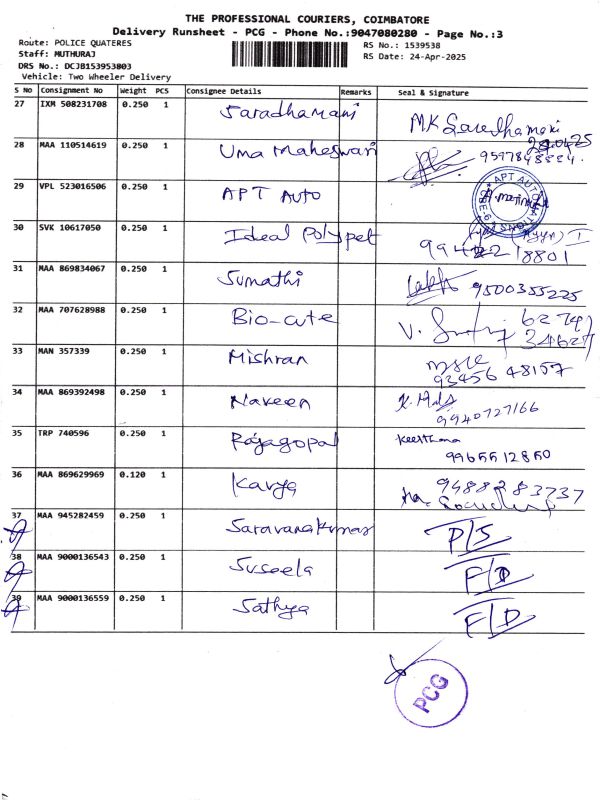 THE PROFESSIONAL COURIERS, COIMBATORE
Delivery Runsheet - PCG - Phone No.:9047080280 - Page No.:3
Route: POLICE QUATERES
RS No.: 1539538
Staff: MUTHURAJ
RS Date: 24-Apr-2025
DRS No.: DCJB153953803
Vehicle: Two Wheeler Delivery
S No Consignment No Weight PCS Consignee Details Remarks Seal & Signature
27 IXM 508231708 0.250 1 Saradhamani M.K Saradhamani
28 MAA 110514619 0.250 1 Uma Maheswari
29 VPL 523016506 0.250 1 APT Auto
30 SVK 10617050 0.250 1 Ideal Polypet
31 MAA 869834067 0.250 1 Sumathi 9500355225
32 MAA 707628988 0.250 1 Bio-cute
33 MAN 357339 0.250 1 Mishran 93456 48157
34 MAA 869392498 0.250 1 Naveen 9940727166
35 TRP 740596 0.250 1 Rajagopal Keerthana
9965512850
36 MAA 869629969 0.120 1 Kavya 9488283737
37 MAA 945282459 0.250 1 Saravanakumar P/S
38 MAA 9000136543 0.250 1 Suseela F/D
39 MAA 9000136559 0.250 1 Sathya F/D
PCG